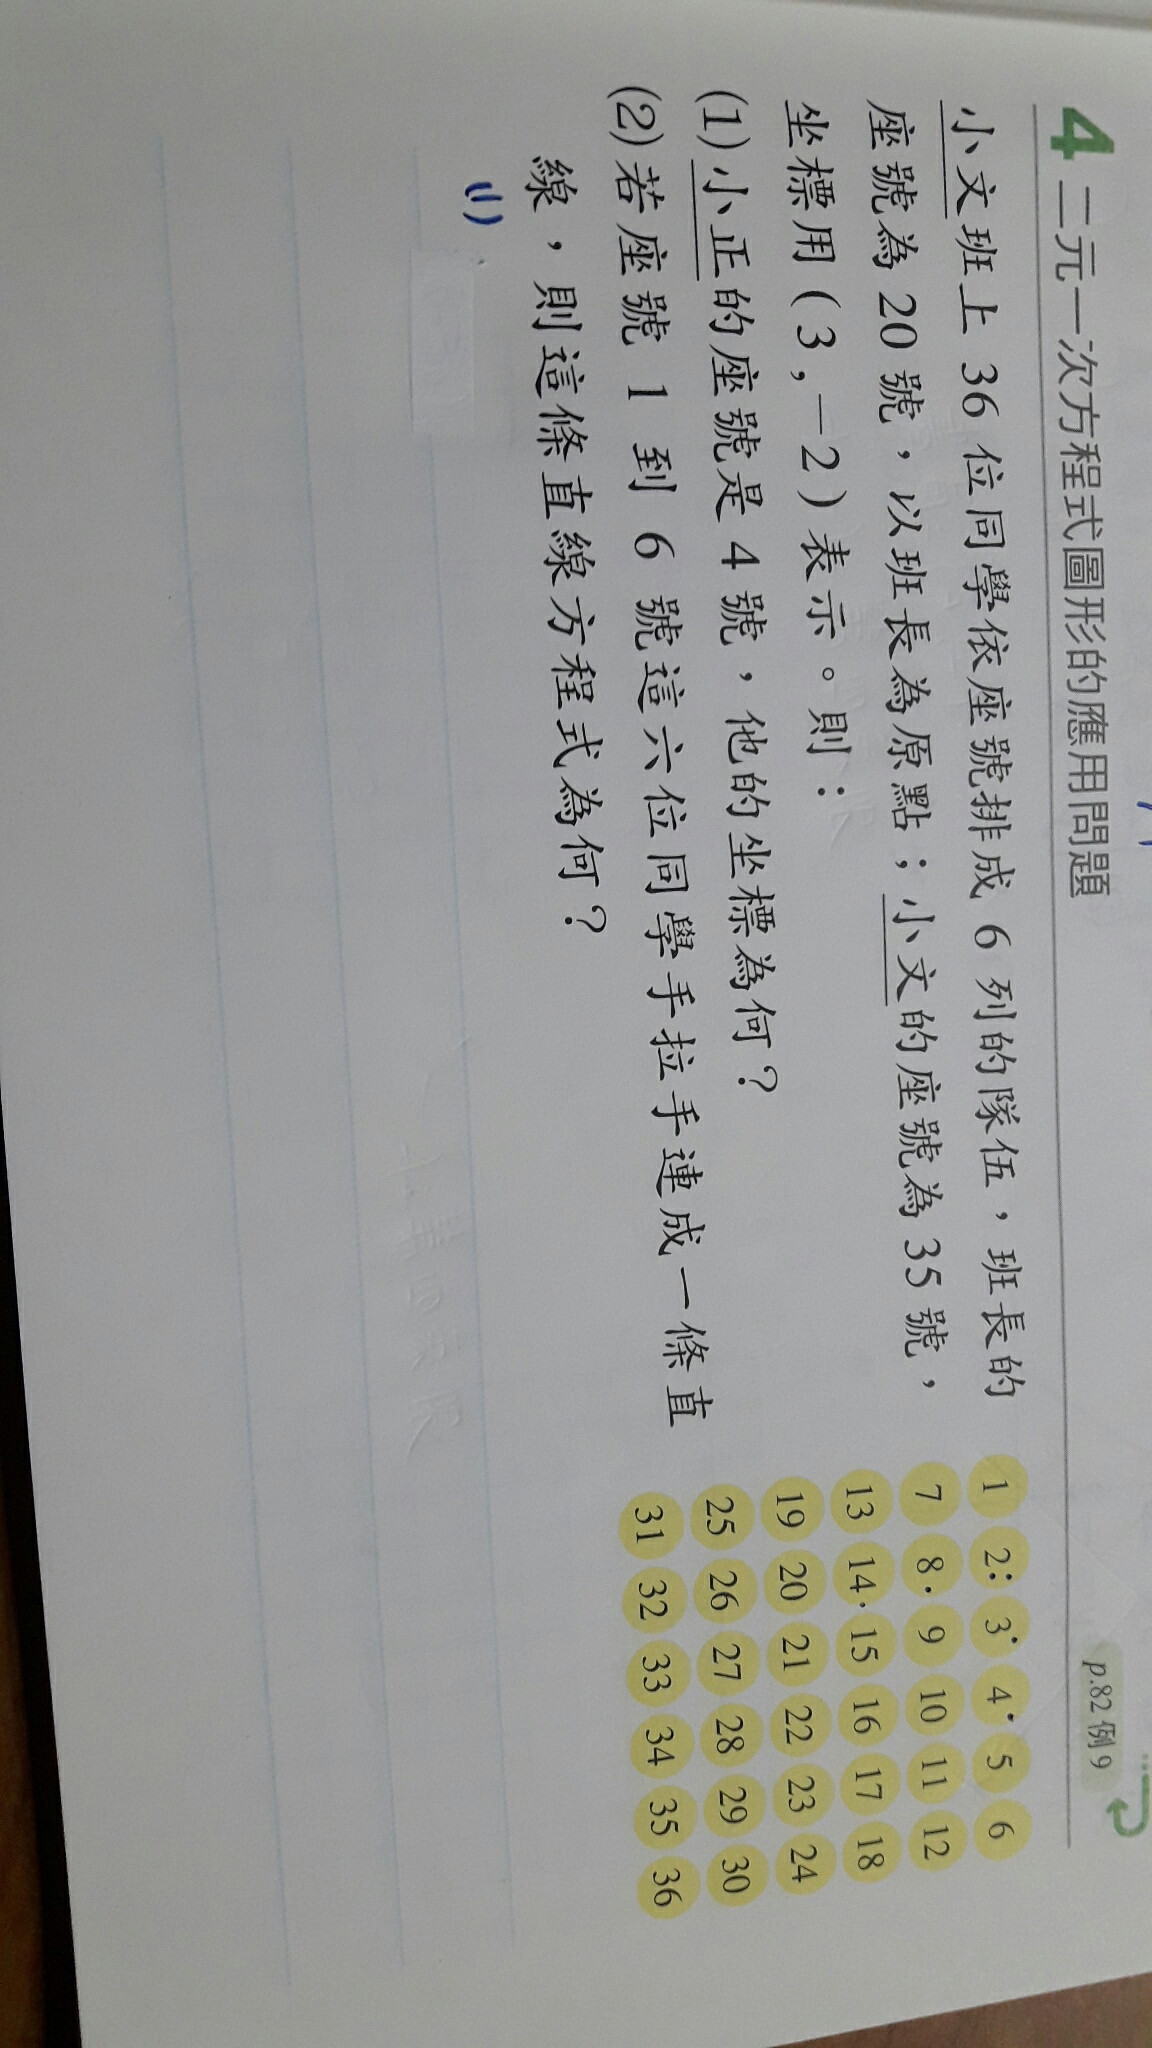 4 二元一次方程式圖形的應用問題
p.82 例9
小文班上 36 位同學依座號排成 6 列的隊伍，班長的
座號為 20 號，以班長為原點；小文的座號為 35 號，
坐標用 ( 3 , －2 ) 表示。則：
(1) 小正的座號是 4 號，他的坐標為何？
(2) 若座號 1 到 6 號這六位同學手拉手連成一條直
線，則這條直線方程式為何？
1 2 3 4 5 6
7 8 9 10 11 12
13 14 15 16 17 18
19 20 21 22 23 24
25 26 27 28 29 30
31 32 33 34 35 36
(1)